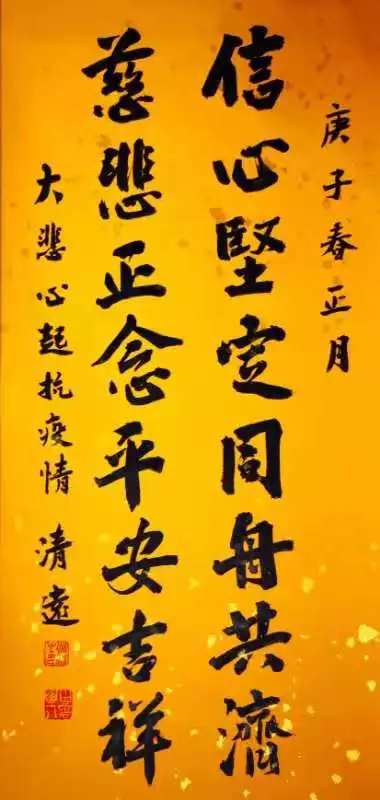 庚子春正月
信心堅定同舟共濟
慈悲正念平安吉祥
大悲心起抗疫情 清遠